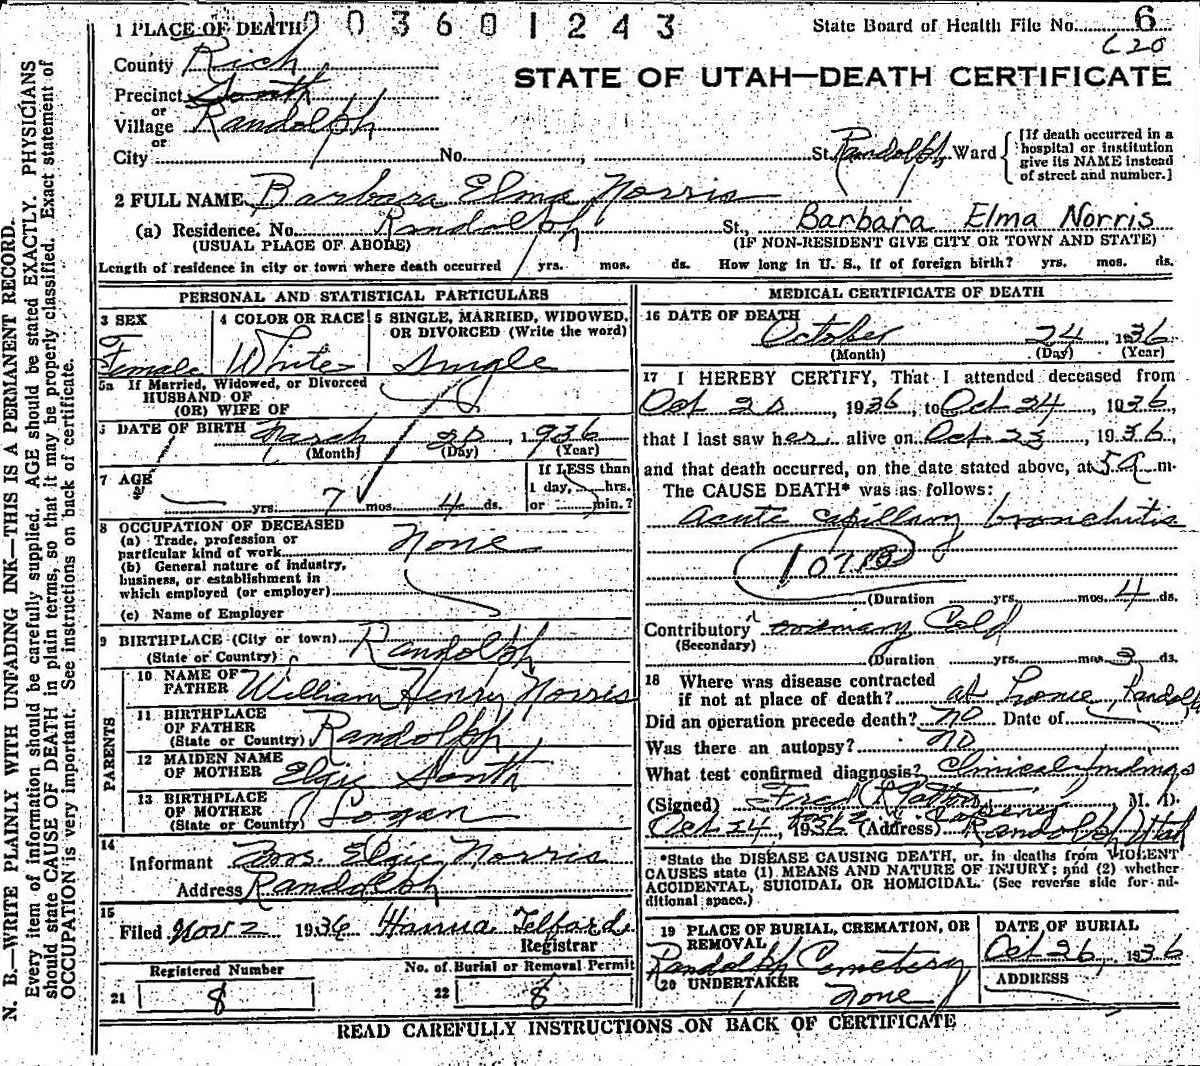 1 PLACE OF DEATH
003601243
State Board of Health File No. 6
620
County Rich
STATE OF UTAH—DEATH CERTIFICATE
Precinct South
or
Village Randolph
or
City No. , St. Randolph Ward {[If death occurred in a hospital or institution give its NAME instead of street and number.]
2 FULL NAME Barbara Elma Norris
(a) Residence. No. Randolph St., Barbara Elma Norris
(USUAL PLACE OF ABODE) (IF NON-RESIDENT GIVE CITY OR TOWN AND STATE)
Length of residence in city or town where death occurred yrs. mos. ds. How long in U. S., if of foreign birth? yrs. mos. ds.
PERSONAL AND STATISTICAL PARTICULARS
3 SEX
Female
4 COLOR OR RACE
White
5 SINGLE, MARRIED, WIDOWED,
OR DIVORCED (Write the word)
Single
5a If Married, Widowed, or Divorced
HUSBAND OF
(OR) WIFE OF
DATE OF BIRTH March 20, 1936
(Month) (Day) (Year)
7 AGE
yrs. 7 mos. 4 ds.
If LESS than
1 day, hrs.
or min.?
8 OCCUPATION OF DECEASED
(a) Trade, profession or
particular kind of work None
(b) General nature of industry,
business, or establishment in
which employed (or employer)
(c) Name of Employer
9 BIRTHPLACE (City or town) Randolph
(State or Country)
PARENTS
10 NAME OF
FATHER William Henry Norris
11 BIRTHPLACE
OF FATHER
(State or Country) Randolph
12 MAIDEN NAME
OF MOTHER Elgie South
13 BIRTHPLACE
OF MOTHER
(State or Country) Logan
14
Informant Mrs. Elgie Norris
Address Randolph
15
Filed Nov 2 1936 Hanna Telford
Registrar
Registered Number
21 8
No. of Burial or Removal Permit
22 8
MEDICAL CERTIFICATE OF DEATH
16 DATE OF DEATH
October 24, 1936
(Month) (Day) (Year)
17 I HEREBY CERTIFY, That I attended deceased from
Oct 20, 1936, to Oct 24, 1936,
that I last saw her alive on Oct 23, 1936,
and that death occurred, on the date stated above, at 5 a m.
The CAUSE DEATH* was as follows:
Acute capillary bronchitis
107B
(Duration yrs. mos. 4 ds.
Contributory Cold
(Secondary)
(Duration yrs. mos. 3 ds.
18 Where was disease contracted
if not at place of death? at home, Randolph
Did an operation precede death? No Date of
Was there an autopsy? No
What test confirmed diagnosis? Clinical findings
(Signed) Fred R Tatton, M. D.
Oct 24, 1936 (Address) Randolph, Utah
*State the DISEASE CAUSING DEATH, or, in deaths from VIOLENT
CAUSES state (1) MEANS AND NATURE OF INJURY; and (2) whether
ACCIDENTAL, SUICIDAL OR HOMICIDAL. (See reverse side for ad-
ditional space.)
19 PLACE OF BURIAL, CREMATION, OR
REMOVAL
Randolph Cemetery
DATE OF BURIAL
Oct 26, 1936
20 UNDERTAKER
None
ADDRESS
READ CAREFULLY INSTRUCTIONS ON BACK OF CERTIFICATE
N. B.—WRITE PLAINLY WITH UNFADING INK—THIS IS A PERMANENT RECORD.
Every item of information should be carefully supplied. AGE should be stated EXACTLY. PHYSICIANS
should state CAUSE OF DEATH in plain terms, so that it may be properly classified. Exact statement of
OCCUPATION is very important. See instructions on back of certificate.